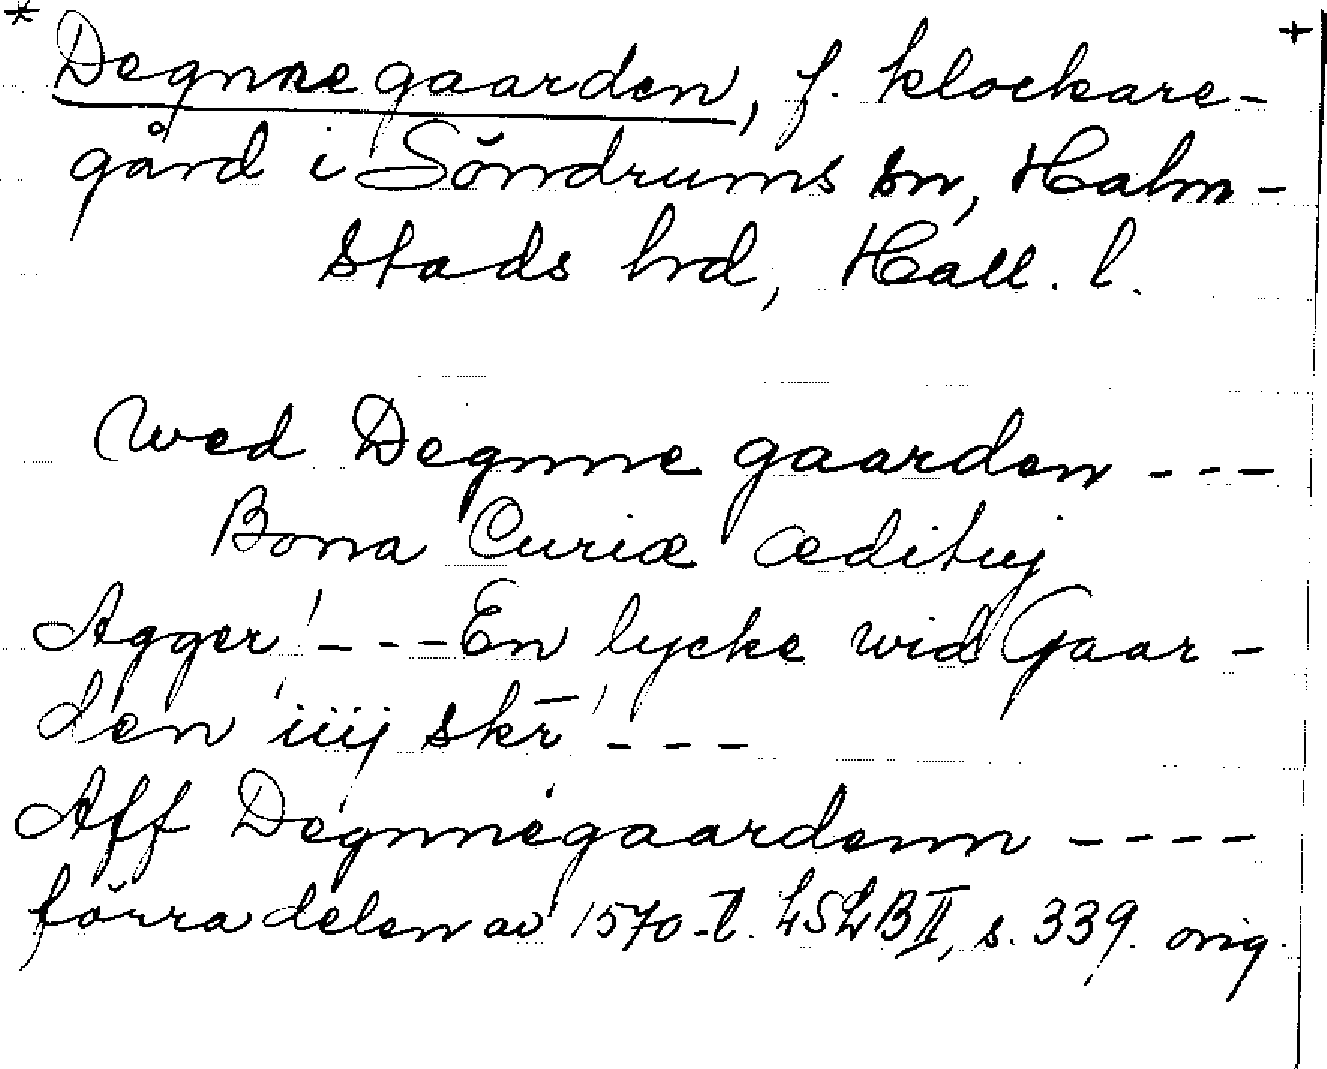 * Degnnegaarden, f. klockare- +
gård i Söndrums sn, Halm-
stads hrd, Hall. l.
Wed Degnne gaarden - - -
Bona Curiæ ædituj
Agger! - - - En lycke wid Gaar-
den iiij skr̄ - - -
Aff Degnnegaardenn - - - -
förra delen av 1570-t. LSLB II, s. 339. orig.